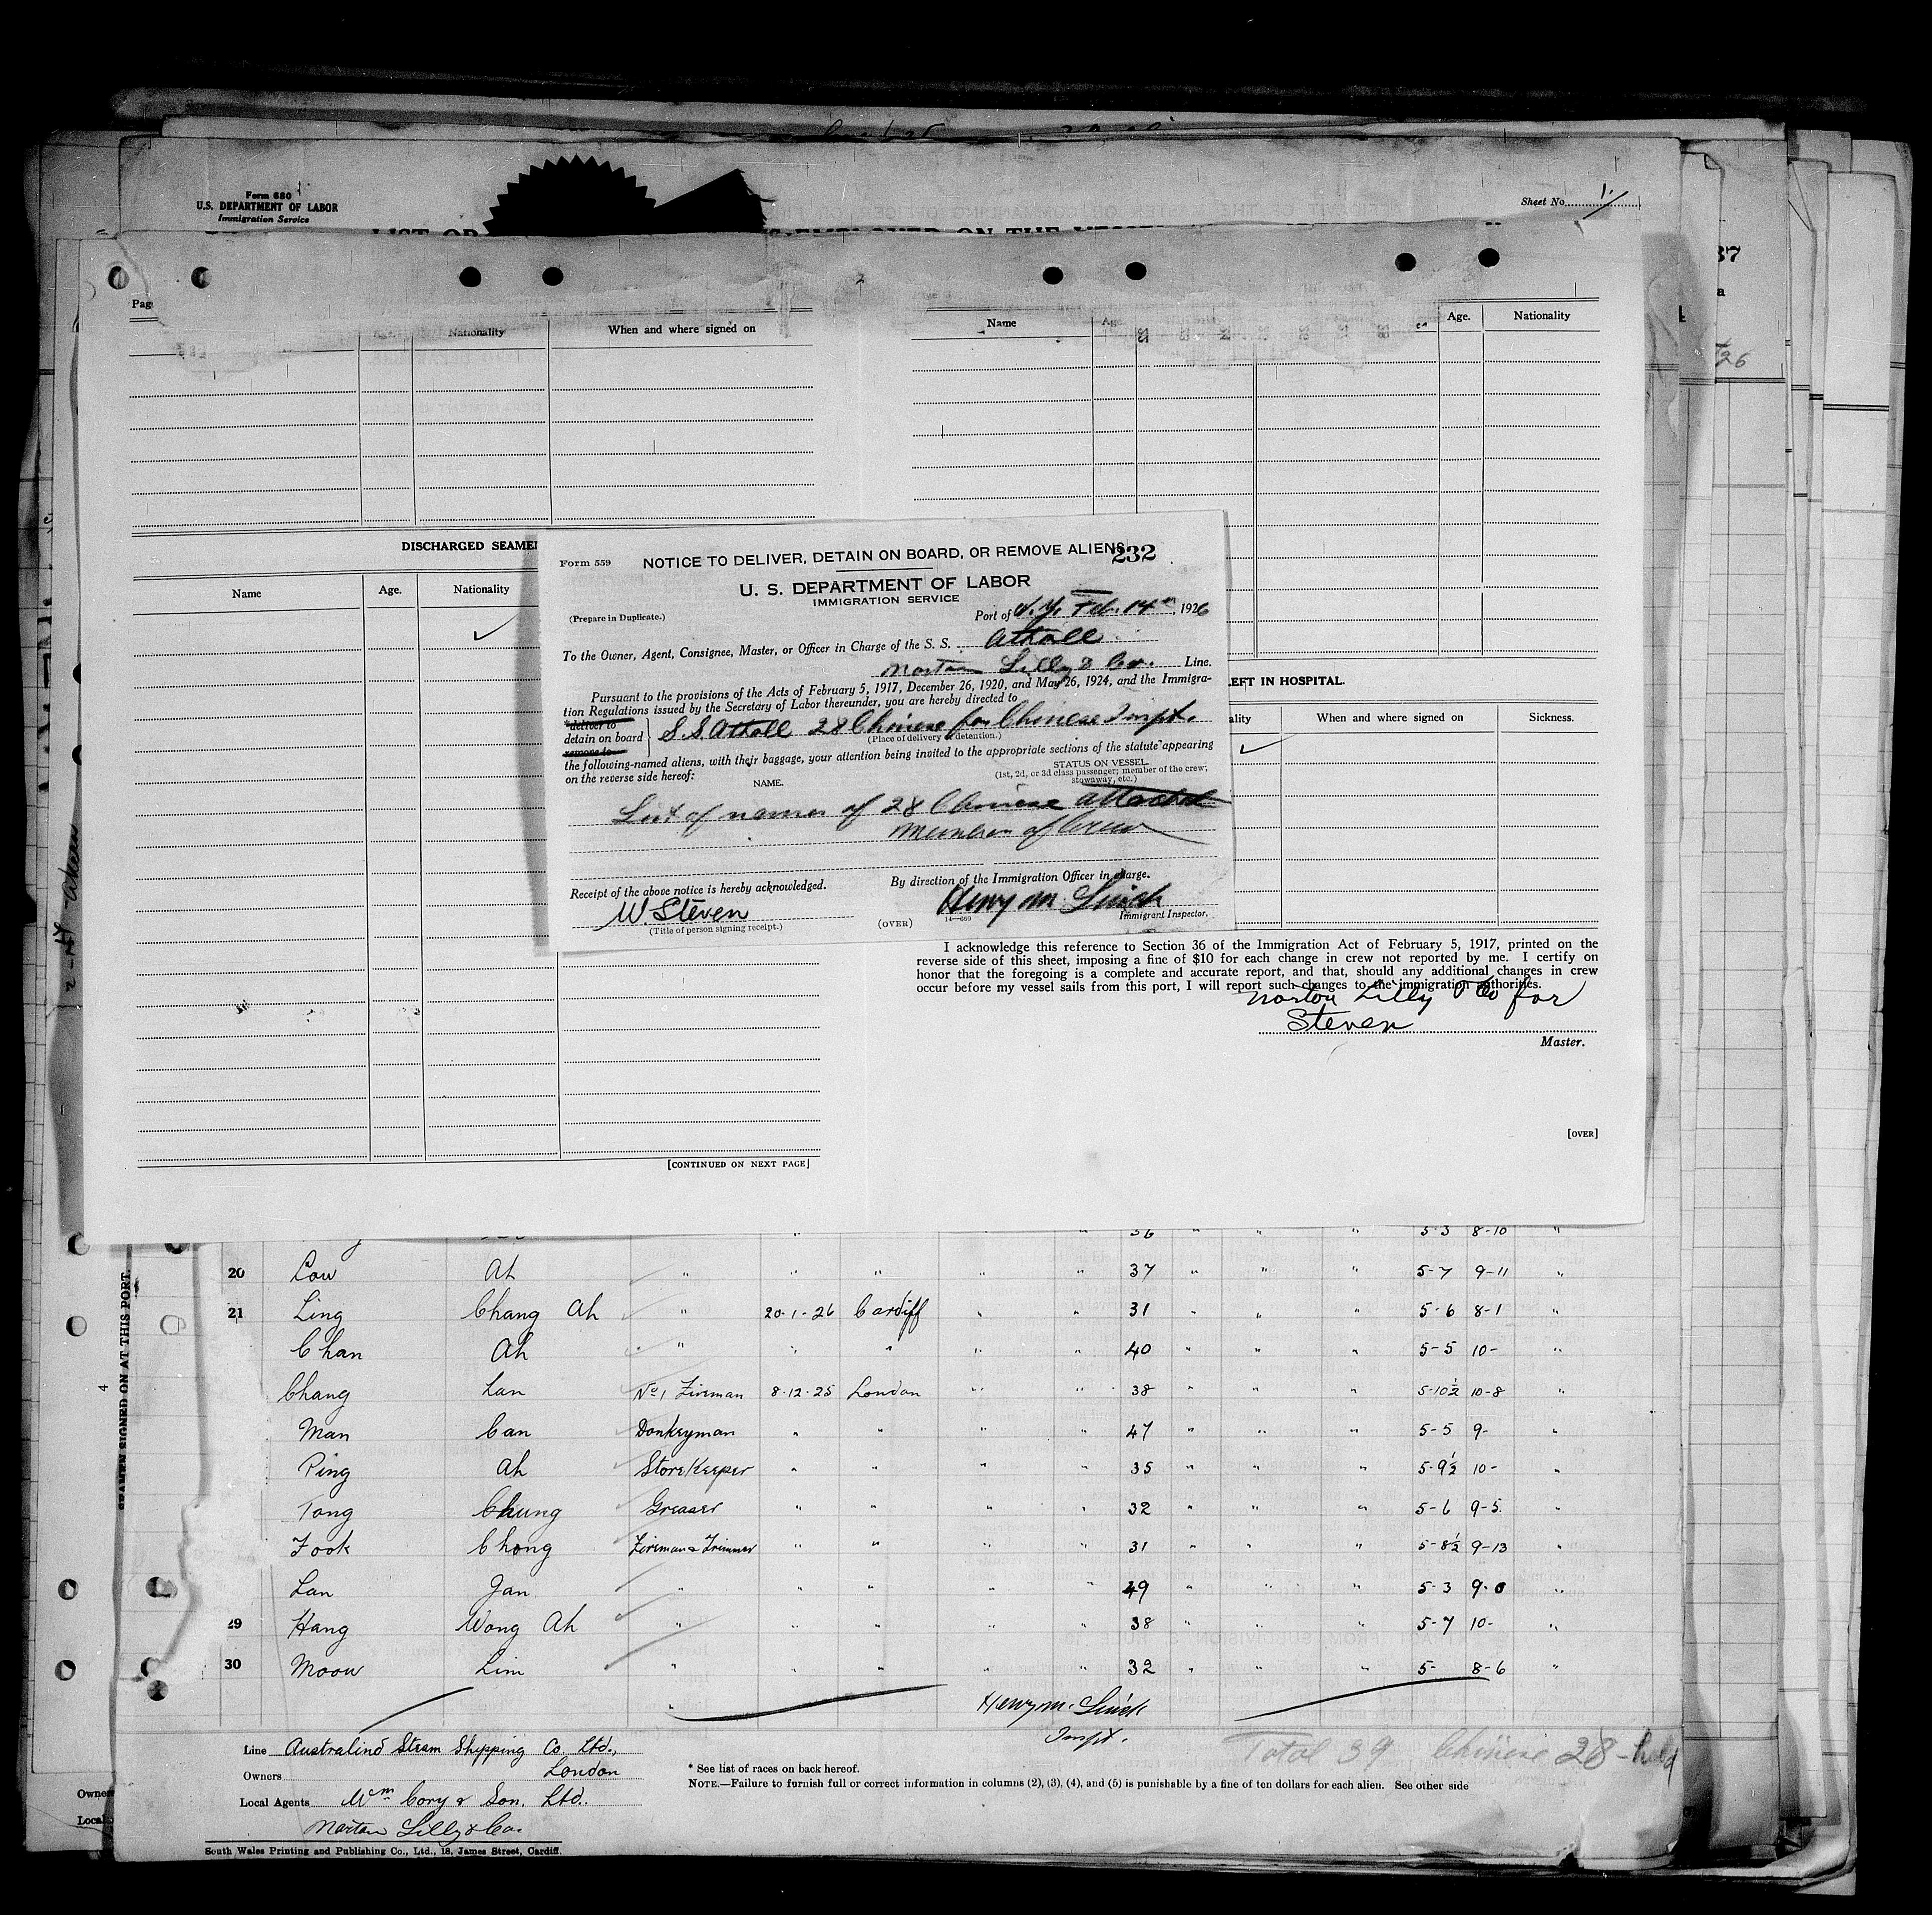 Form 680
U.S. DEPARTMENT OF LABOR
Immigration Service
Sheet No. 1
LIST OR
EMPLOYED ON THE VESSEL
Pag
Nationality
When and where signed on
Name
Age.
Age.
Nationality
DISCHARGED SEAMEN
Name
Age.
Nationality
LEFT IN HOSPITAL.
When and where signed on
Sickness.
Form 559
NOTICE TO DELIVER, DETAIN ON BOARD, OR REMOVE ALIENS
232
U. S. DEPARTMENT OF LABOR
IMMIGRATION SERVICE
(Prepare in Duplicate.)
Port of N.Y. Feb. 14th, 1926
To the Owner, Agent, Consignee, Master, or Officer in Charge of the S. S. Atholl
Norton Lilly & Co. Line.
Pursuant to the provisions of the Acts of February 5, 1917, December 26, 1920, and May 26, 1924, and the Immigra-
tion Regulations issued by the Secretary of Labor thereunder, you are hereby directed to
*deliver to
detain on board
remove to
S.S Atholl 28 Chinese for Chinese Inspt.
(Place of delivery or detention.)
the following-named aliens, with their baggage, your attention being invited to the appropriate sections of the statute appearing
on the reverse side hereof:
NAME.
STATUS ON VESSEL
(1st, 2d, or 3d class passenger; member of the crew;
stowaway, etc.)
List of names of 28 Chinese attached
Members of Crew
Receipt of the above notice is hereby acknowledged.
By direction of the Immigration Officer in charge.
W. Steven
Henry M
(Title of person signing receipt.)
(OVER)
14—669
Immigrant Inspector.
I acknowledge this reference to Section 36 of the Immigration Act of February 5, 1917, printed on the
reverse side of this sheet, imposing a fine of $10 for each change in crew not reported by me. I certify on
honor that the foregoing is a complete and accurate report, and that, should any additional changes in crew
occur before my vessel sails from this port, I will report such changes to the immigration authorities.
Norton Lilly & Co for
Steven
Master.
[OVER]
[CONTINUED ON NEXT PAGE]
SEAMEN SIGNED ON AT THIS PORT.
4
37
26
" " 36 " " " 5-3 8-10 "
20 Low Ah " " " " " 37 " " " 5-7 9-11 "
21 Ling Chang Ah " 20-1-26 Cardiff " " 31 " " 5-6 8-1 "
Chan Ah " " " " " 40 " " " 5-5 10- "
Chang Lan No 1 Fireman 8-12-25 London " " 38 " " " 5-10½ 10-8 "
Man Can Donkeyman " " " " 47 " " " 5-5 9- "
Ping Ah StoreKeeper " " " " 35 " " " 5-9½ 10- "
Tong Chung Greaser " " " " 32 " " " 5-6 9-5 "
Fook Chong Fireman & Trimmer " " " " 31 " " " 5-8½ 9-13 "
Lan Jan " " " " " 49 " " " 5-3 9-0 "
29 Hang Wong Ah " " " " " 38 " " " 5-7 10- "
30 Moow Lim " " " " " 32 " " " 5- 8-6 "
Henry M.
Inspt.
Total 39 Chinese 28 - held
Line Australind Steam Shipping Co. Ltd.,
Owners London
Local Agents Wm Cory & Son, Ltd.
Norton Lilly & Co.
* See list of races on back hereof.
NOTE.—Failure to furnish full or correct information in columns (2), (3), (4), and (5) is punishable by a fine of ten dollars for each alien. See other side
South Wales Printing and Publishing Co., Ltd., 18, James Street, Cardiff.
Owners
Local